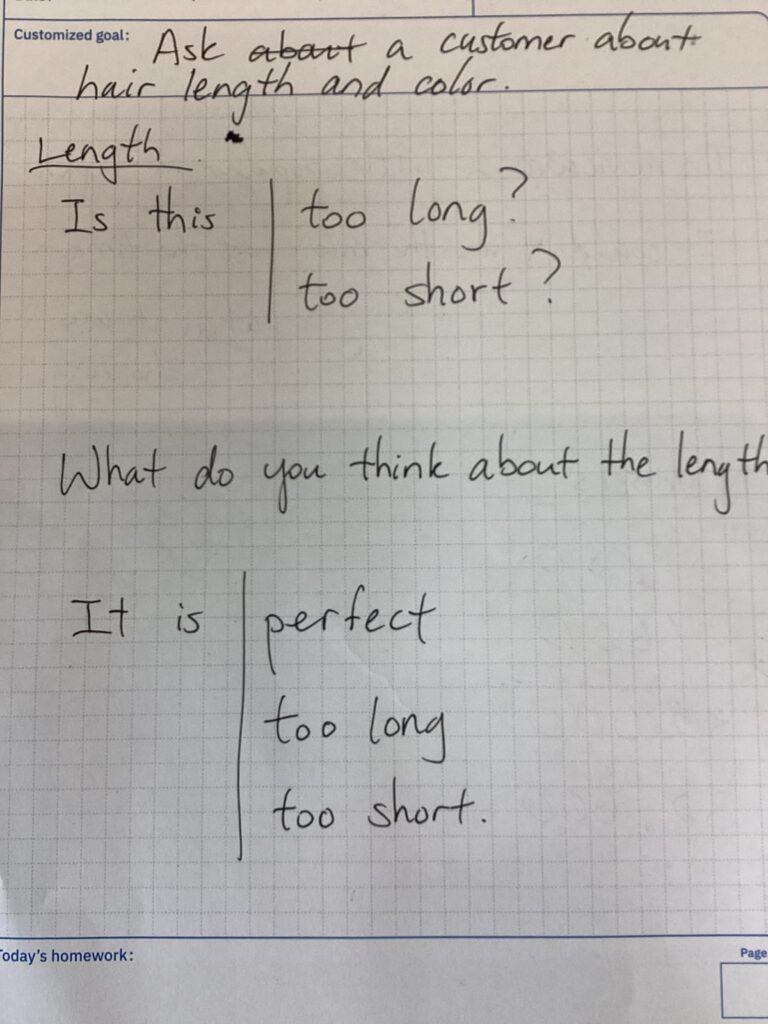 Customized goal: Ask about a customer about
hair length and color.
Length
Is this too long?
too short?
What do you think about the length
It is perfect
too long
too short.
Today's homework:
Page